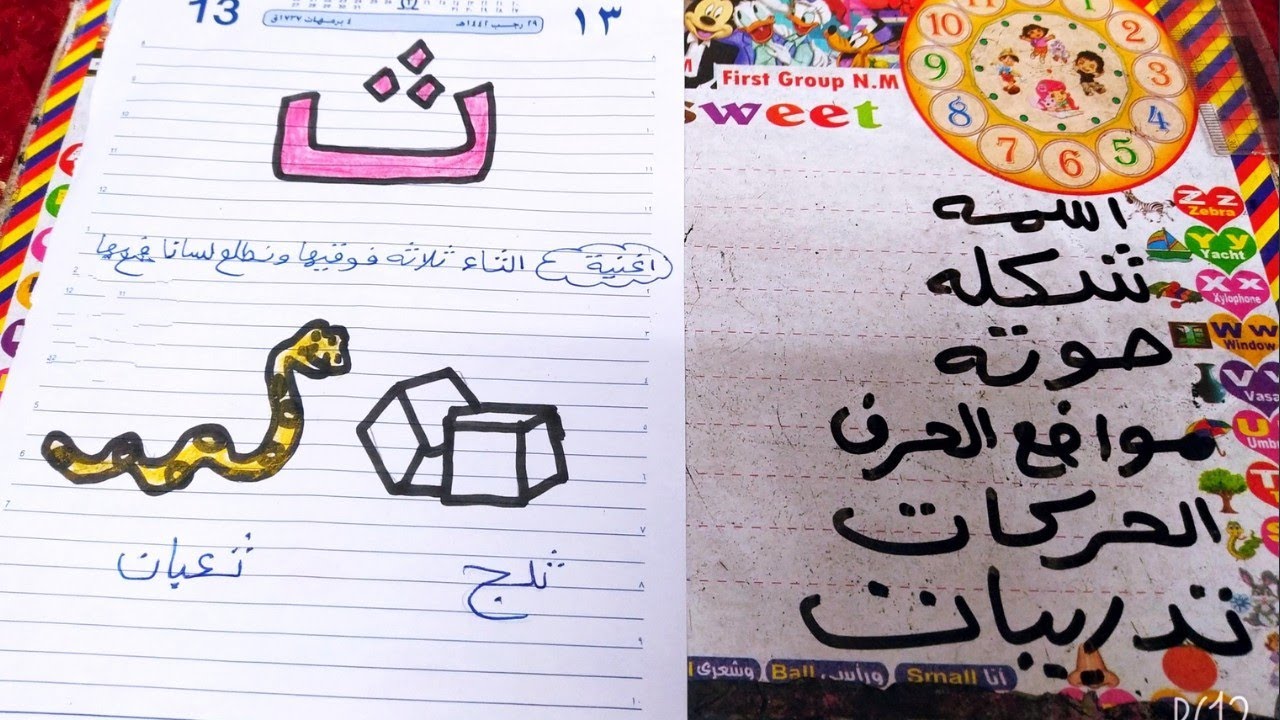 13
٢٩ رجب ١٤٤٢هـ
٤ برمهات ١٧٣٧ق
١٣
ث
اغنية
الثاء ثلاثه فوقيها ونطلع لسانا فيها
ثعبان
ثلج
First Group N.M
sweet
1
2
3
4
5
6
7
8
9
10
11
اسمه
شكله
صوته
مواضع الحرف
الحركات
تدريبات
Z z
Zebra
Y y
Yacht
X x
Xylophone
W w
Window
V v
Vasa
U
Umb
وشعرى
Ball
ورأس
Small
أنا